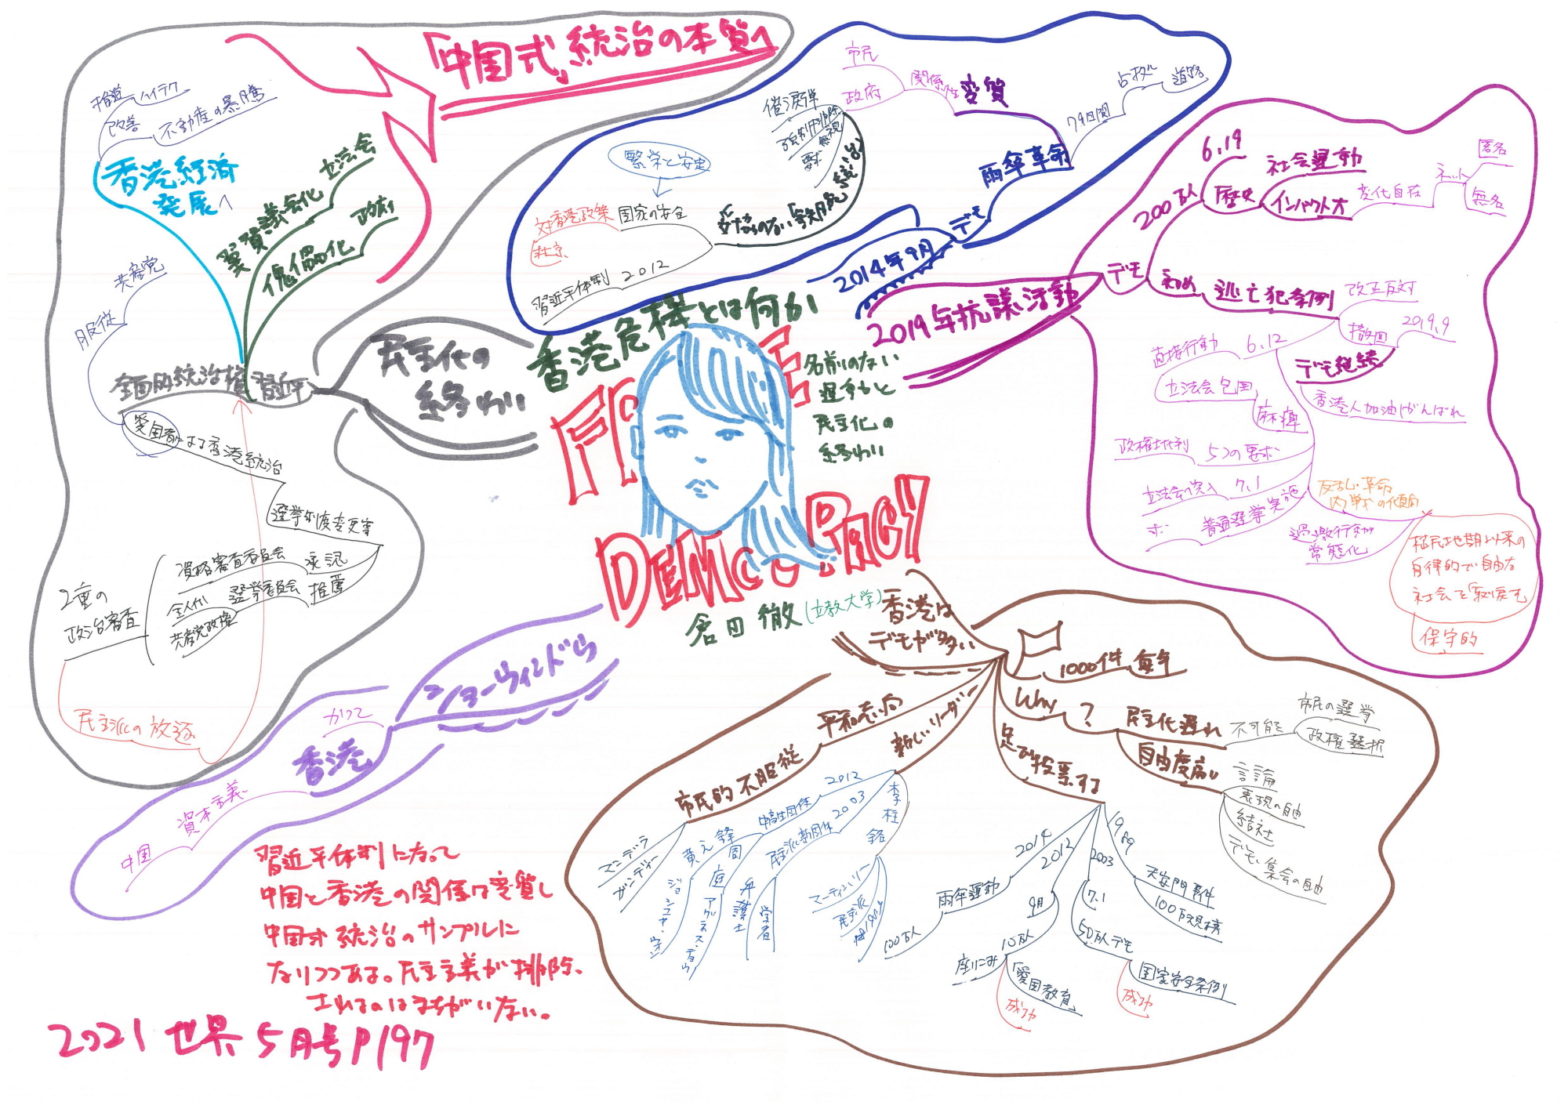 「中国式」統治の本質へ
香港危機とは何か
名前のない
運動と
民主化の
終わり
FREE
DEMOCRACY
倉田 徹(立教大学)
2019年抗議活動
デモ
200万人
6.19
歴史
社会運動
インパクト大
変化自在
ネット
匿名
無名
初め
逃亡犯条例
改正反対
撤回
2019.9
デモ継続
香港人加油(がんばれ
6.12
直接行動
立法会包囲
麻痺
5つの要求
政権批判
7.1
立法会突入
普通選挙実施
過激行動が
常態化
反乱・革命
内戦への傾向
植民地期以来の
自律的で自由な
社会を「恢復」
保守的
2014年9月
デモ
雨傘革命
79日間
占拠
道路
変質
関係性
市民
政府
催涙弾
強制排除
要求無視
変だらけのない「鉄腕」統治
国家の安全
対香港政策
北京
繁栄と安定
習近平体制 2012
民主化の
終わり
習近平
全面的統治権
服従
共産党
香港経済
発展へ
改善
不動産の暴騰
ハイテク
翼賛議会化
立法会
傀儡化
政府
愛国者による香港統治
選挙制度変更等
2重の
政治審査
資格審査委員会
承認
選挙委員会
推薦
全人代
共産党政権
民主派の放逐
ショーウィンドウ
香港
かつて
資本主義
中国
香港は
デモが多い
1000件 毎年
Why?
民主化遅れ
不可能
市民の選挙
政権選択
自由度高い
言論
表現の自由
結社
デモ・集会の自由
足で投票する
1989
天安門事件
100万規模
2003
7.1
50万人デモ
国家安全条例
成功
2012
9月
10万人
座り込み
「愛国教育」
成功
2014
雨傘運動
100万人
新しいリーダー
李柱銘
マーティン・リー
民主派
2003
民主派新団体
弁護士
学者
2012
中高生団体
黄之鋒
ジョシュア・ウォン
周庭
アグネス・チョウ
平和志向
市民的不服従
マンデラ
ガンディー
習近平体制になって
中国と香港の関係は変質し
中国式統治のサンプルに
なりつつある。民主主義が排除
されるのはまちがいない。
2021 世界 5月号P197